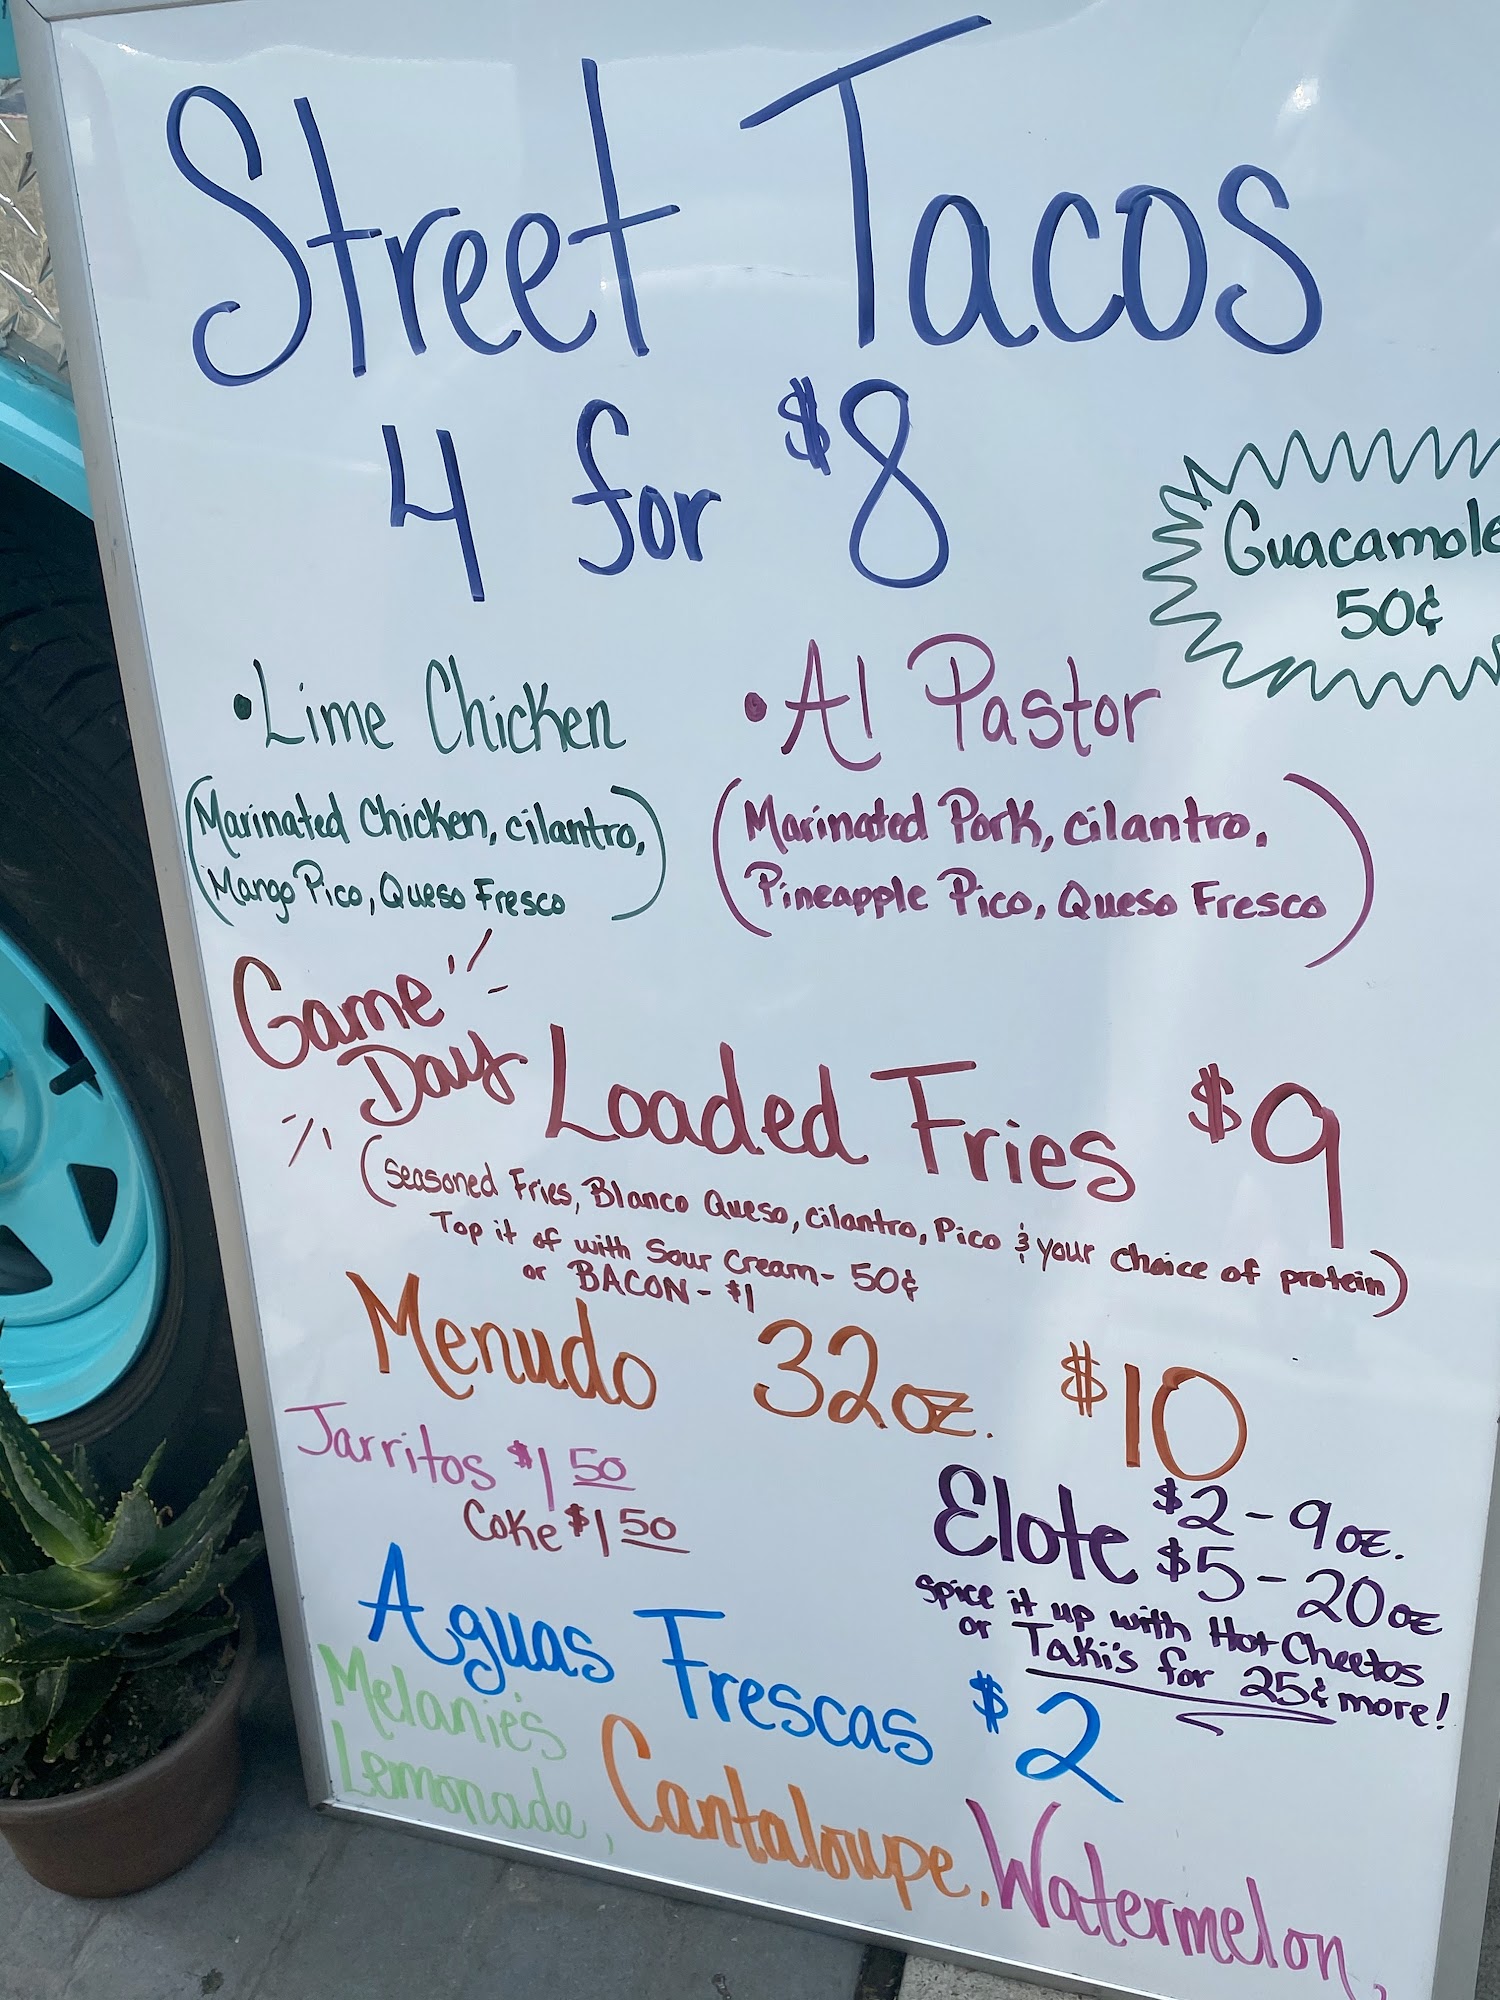 Street Tacos
4 for $8
Guacamole
50¢
• Lime Chicken
(Marinated Chicken, cilantro,
Mango Pico, Queso Fresco)
• Al Pastor
(Marinated Pork, cilantro,
Pineapple Pico, Queso Fresco)
Game
Day
Loaded Fries $9
(Seasoned Fries, Blanco Queso, cilantro, Pico & your choice of protein)
Top it of with Sour Cream - 50¢
or BACON - $1
Menudo 32oz. $10
Jarritos $1 50
Coke $1 50
Elote $2 - 9oz.
$5 - 20oz
Spice it up with Hot Cheetos
or Taki's for 25¢ more!
Aguas Frescas $2
Melanie's
Lemonade, Cantaloupe, Watermelon,